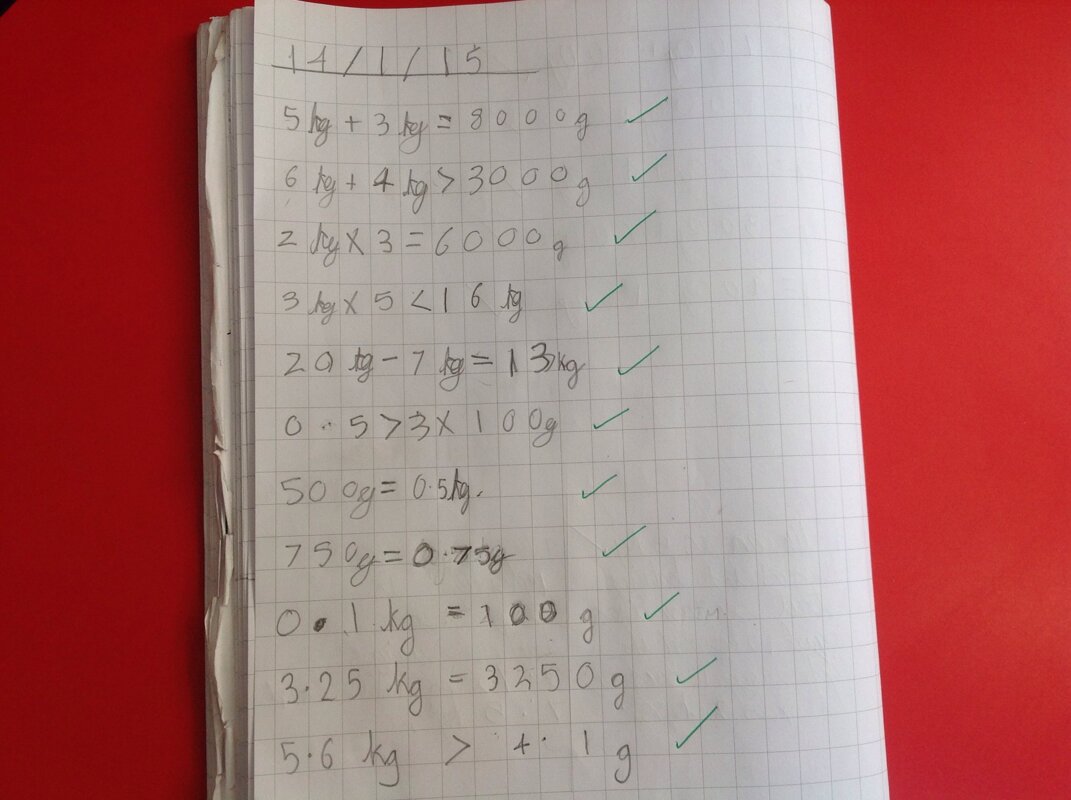 14/1/15
5kg + 3kg = 8000g
6kg + 4kg > 3000g
2kg x 3 = 6000g
3kg x 5 < 16kg
20kg - 7kg = 13kg
0.5 > 3 x 100g
500g = 0.5kg.
750g = 0.75g
0.1kg = 100g
3.25kg = 3250g
5.6kg > 4.1g